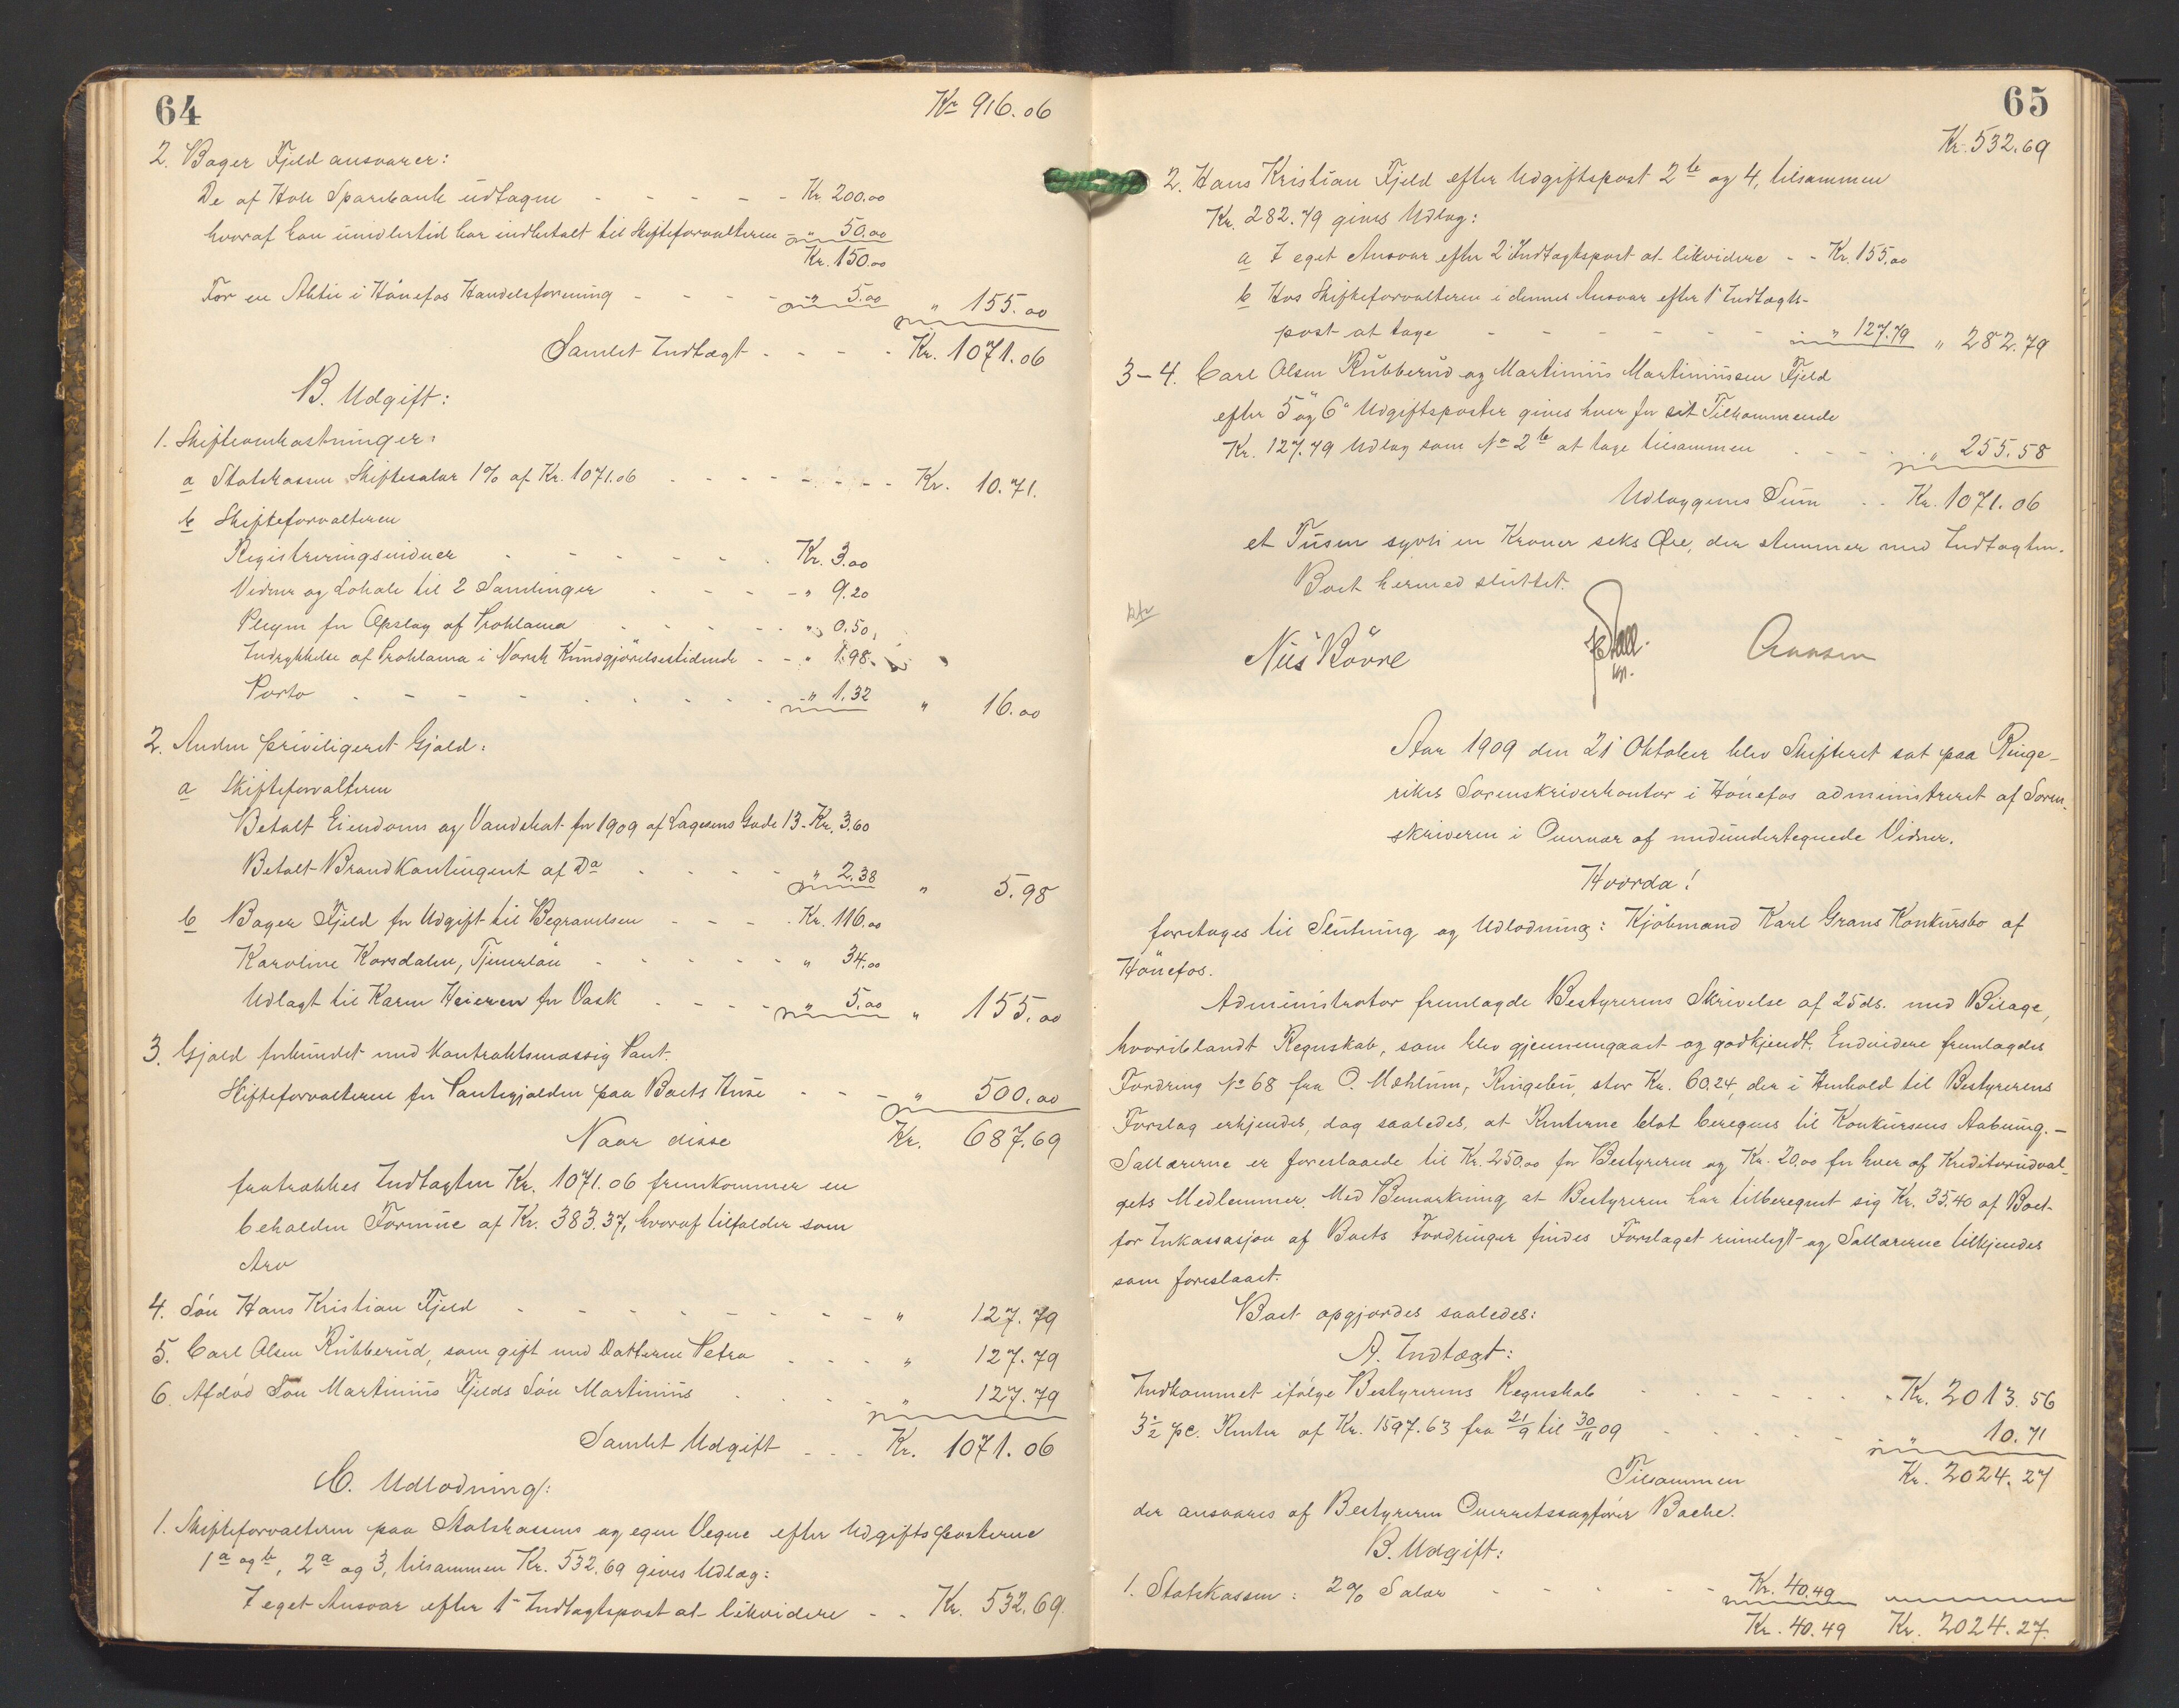 64
Kr 916.06
2. Bager Fjeld ansvarer:
De af Hole Sparebank udtagne - - - - - Kr. 200.00
hvoraf han imidlertid har indbetalt til Skifteforvalteren - " 50.00
Kr. 150.00
For en Aktie i Hönefos Handelsforening - - - - " 5.00 " 155.00
Samlet Indtægt - - - - Kr. 1071.06
B. Udgift:
1. Skifteomkostninger:
a Statskassen Skiftesalær 1% af Kr. 1071.06 - - - - - - - Kr. 10.71.
b Skifteforvalteren
Registreringsvidner - - - - - - Kr. 3.00
Vidner og Lokale til 2 Samlinger - - - - " 9.20
Plegm for Opslag af Proklama - - - - - " 0.50
Indrykkelse af Proklama i Norsk Kundgjörelsestidende - - " 1.98
Porto - - - - - - - - - " 1.32 " 16.00
2. Anden priviligeret Gjæld:
a Skifteforvalteren
Betalt Eiendoms og Vandskat for 1909 af Lagesens Gade 13 - Kr. 3.60
Betalt Brandkontingent af Do - - - - " 2.38 " 5.98
b Bager Fjeld for Udgift til Begravelsen - - - Kr. 116.00
Karoline Korsdalen, Tjenerlön - - - - - " 34.00
Udlagt til Karen Heieren for Vask - - - " 5.00 " 155.00
3. Gjæld forbundet med Kontraktsmæssig Pant.
Skifteforvalteren for Pantegjælden paa Boets Huse - - - " 500.00
Naar disse Kr. 687.69
fratrækkes Indtægten Kr. 1071.06 fremkommer en
beholden Formue af Kr. 383.37, hvoraf tilfalder som
Arv
4. Sön Hans Kristian Fjeld - - - - - - - - " 127.79
5. Carl Olsen Rubberud, som gift med Datteren Petra - - - " 127.79
6. Afdöd Sön Martinius Fjelds Sön Martinius - - - " 127.79
Samlet Udgift - - - Kr. 1071.06
C. Udlodning:
1. Skifteforvalteren paa Statskassens og egne Vegne efter Udgiftsposterne
1 a og b, 2 a og 3, tilsammen Kr. 532.69 gives Udlæg:
I eget Ansvar efter 1' Indtægtspost at likvidere - - Kr. 532.69.
65
Kr. 532.69
2. Hans Kristian Fjeld efter Udgiftspost 2 b og 4, tilsammen
Kr. 282.79 gives Udlæg:
a I eget Ansvar efter 2' Indtægtspost at likvidere - - Kr. 155.00
b Hos Skifteforvalteren i dennes Ansvar efter 1' Indtægts-
post at tage - - - - - - - " 127.79 " 282.79
3-4. Carl Olsen Rubberud og Martinius Martiniussen Fjeld
efter 5' og 6' Udgiftsposter gives hver for sit Tilkommende
Kr. 127.79 Udlæg som No 2 b at tage tilsammen - - - " 255.58
Udlæggenes Sum - - Kr. 1071.06
et Tusen sytti en Kroner seks Öre, der stemmer med Indtægten.
Boet hermed sluttet.
Aar 1909 den 21' Oktober blev Skifteret sat paa Ringe-
rikes Sorenskriverkontor i Hönefos administreret af Soren-
skriveren i Overvær af nedundertegnede Vidner.
Hvorda!
foretages til Slutning og Udlodning: Kjöbmand Karl Grans Konkursbo af
Hönefos.
Administrator fremlagde Bestyrerens Skrivelse af 25 ds. med Bilage,
hvoriblandt Regnskab, som blev gjennemgaaet og godkjendt. Endvidere fremlagdes
Fordring No 68 fra O. Mæhlum, Ringebu, stor Kr. 60.24, der i Henhold til Bestyrerens
Forslag erkjendes, dog saaledes, at Renterne blot beregnes til Konkursens Aabning. -
Sallærerne er foreslaaede til Kr. 250.00 for Bestyreren og Kr. 20.00 for hver af Kreditorudval-
gets Medlemmer. Med Bemærkning at Bestyreren har tilberegnet sig Kr. 35.40 af Boet
for Inkassasjon af Boets Fordringer findes Forslaget rimeligt og Sallærerne tilkjendes
som foreslaaet.
Boet opgjordes saaledes:
A. Indtægt:
Indkommet ifölge Bestyrerens Regnskab - - - - - - Kr. 2013.56
3 1/2 pc. Renter af Kr. 1597.63 fra 21/9 til 30/11 09 - - - - - " 10.71
Tilsammen Kr. 2024.27
der ansvares af Bestyreren Overretssagförer Bache.
B. Udgift:
1. Statskassen: 2% Salær - - - - - Kr. 40.49
Kr. 40.49 Kr. 2024.27.